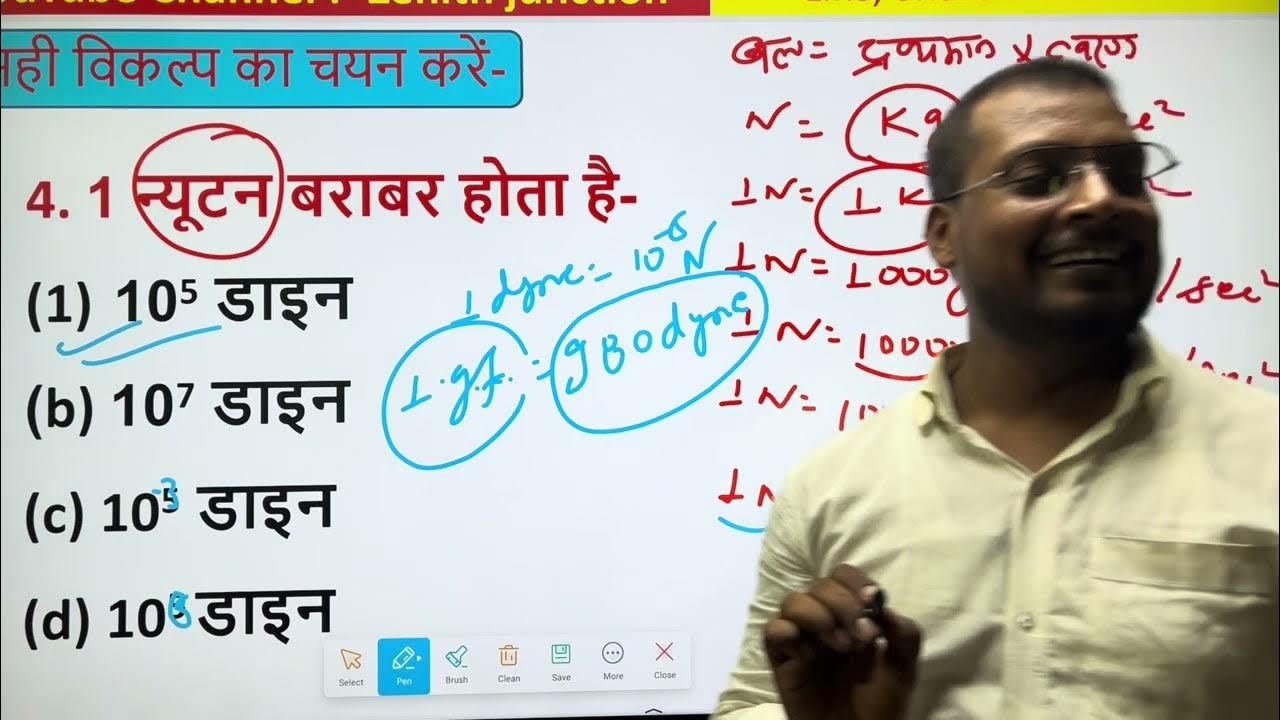 YouTube Channel:- Zenith Junction
सही विकल्प का चयन करें-
4. 1 न्यूटन बराबर होता है-
(1) 10⁵ डाइन
(b) 10⁷ डाइन
(c) 10⁻³ डाइन
(d) 10⁸ डाइन
1 dyne = 10⁻⁵ N
1.g.f. = 980 dyne
बल = द्रव्यमान × त्वरण
N =
1 N = 1 K
1 N = 1000 g /sec²
1 N = 1000
1 N =
1 N
Select
Pen
Brush
Clean
Save
More
Close